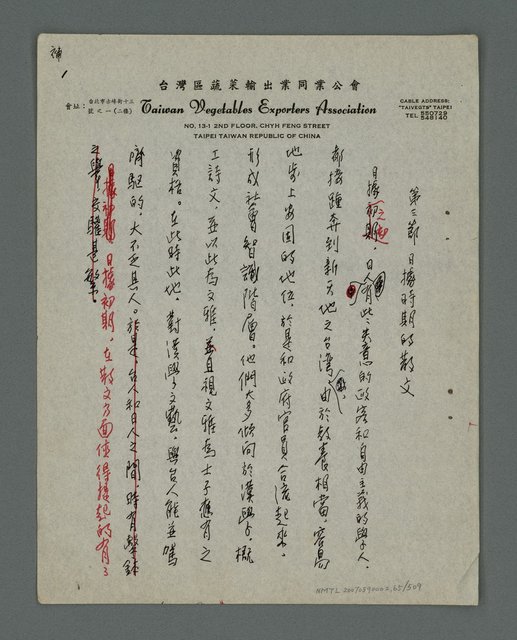 補
1
台灣區蔬菜輸出業同業公會
會址：台北市赤峰街十三號之一(二樓)
Taiwan Vegetables Exporters Association
CABLE ADDRESS:
"TAIVEGTS" TAIPEI
TEL 550729
549140
NO. 13-1 2ND FLOOR, CHYH FENG STREET
TAIPEI TAIWAN REPUBLIC OF CHINA
第三節 日據時期的散文
日據初期，日人有些失意的政客和自由主義的學人，
都接踵奔到新天地之台灣，由於教養相當，容易
地步上安固的地位，於是和政府官員合流起來。
形成社會智識階層。他們大多傾向於漢學，概
工詩文，並以此為文雅，並且視文雅為士子應有之
資格。在此時此地，對漢學文藝，與台人能並駕
齊驅的，大不乏其人。於是，台人和日人之間，時有
日據初期，在散文方面值得提起的有
NMTL 20070890002,65/509